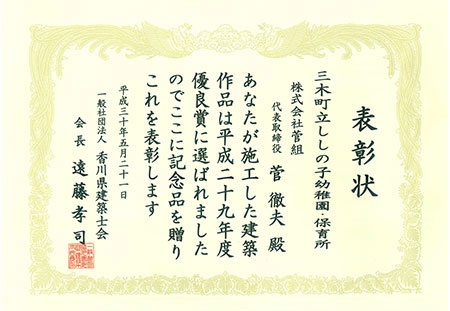 表彰状
三木町立ししの子幼稚園・保育所
株式会社菅組
代表取締役 菅 徹夫 殿
あなたが施工した建築
作品は平成二十九年度
優良賞に選ばれました
のでここに記念品を贈り
これを表彰します
平成三十年五月二十一日
一般社団法人 香川県建築士会
会長 遠藤孝司